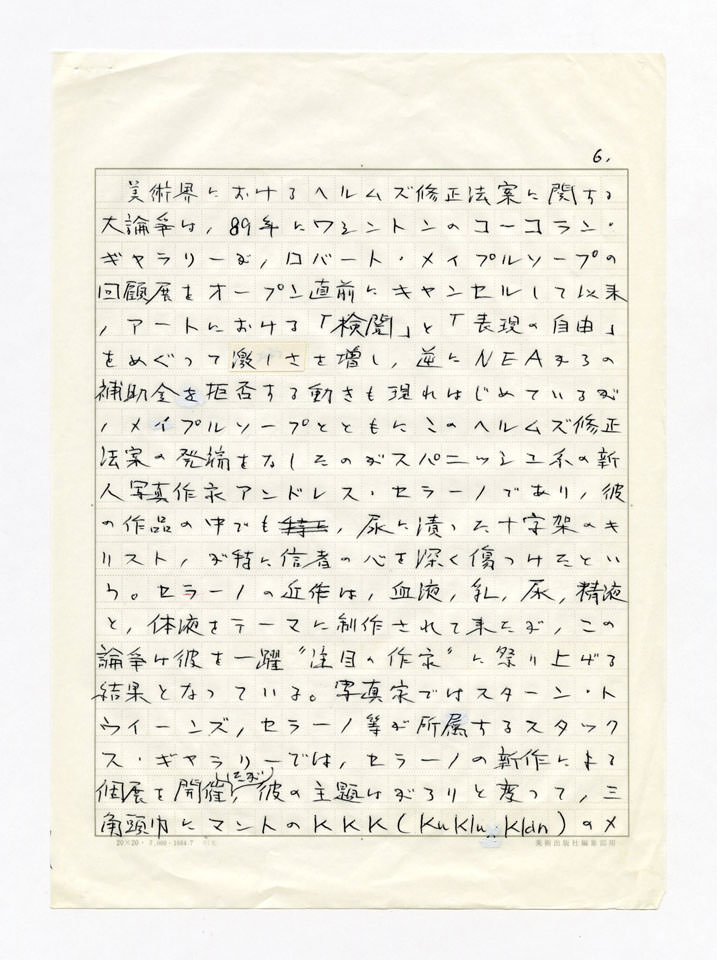 6.
美術界におけるヘルムズ修正法案に関する
大論争は,89年にワシントンのコーコラン・
ギャラリーが,ロバート・メイプルソープの
回顧展をオープン直前にキャンセルして以来
,アートにおける「検閲」と「表現の自由」
をめぐって激しさを増し,逆にNEAからの
補助金を拒否する動きも現れはじめているが
,メイプルソープとともにこのヘルムズ修正
法案の発端をなしたのがスパニッシュ系の新
人写真作家アンドレス・セラーノであり,彼
の作品の中でも,尿に漬った十字架のキ
リスト,が特に信者の心を深く傷つけたとい
う。セラーノの近作は,血液,乳,尿,精液
と,体液をテーマに制作されて来たが,この
論争は彼を一躍“注目の作家”に祭り上げる
結果となっている。写真家ではスターン・ト
ウィーンズ,セラーノ等が所属するスタック
ス・ギャラリーでは,セラーノの新作による
個展を開催したが,彼の主題はがらりと変って,三
角頭巾にマントのKKK(Ku Klux Klan)のメ
20×20・7,000・1984.7
美術出版社編集部用